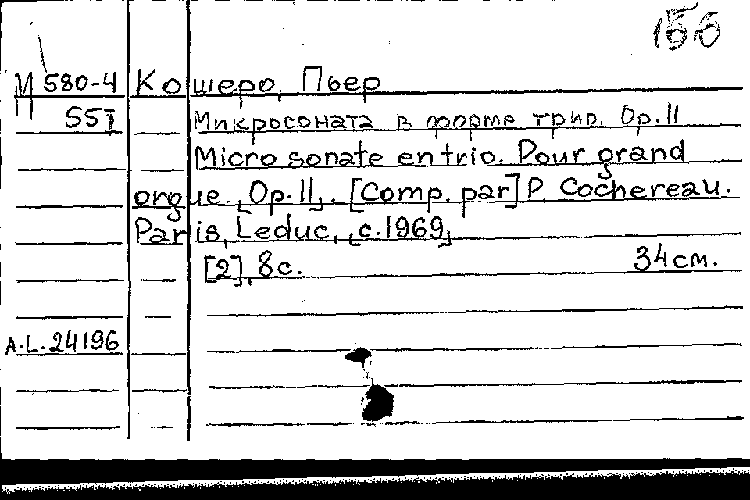 155
М 580-4 Кошеро, Пьер
557 Микросоната в форме трио. Op. 11
Micro sonate en trio. Pour grand
orgue, Op. 11. [Comp. par] P. Cochereau.
Paris, Leduc, [c. 1969]
[2], 8 с. 34 см.
A.L. 24196